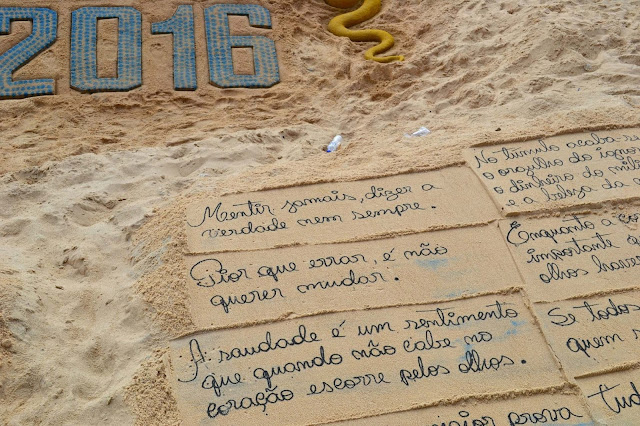 2016
Mentir jamais, dizer a
verdade nem sempre.
Pior que errar, é não
querer mudar.
A saudade é um sentimento
que quando não cabe no
coração escorre pelos olhos.
prova
No túmulo acaba
o orgulho do
o dinheiro do
e a beleza da
Enquanto a
importante
olhos
Se todos
quem